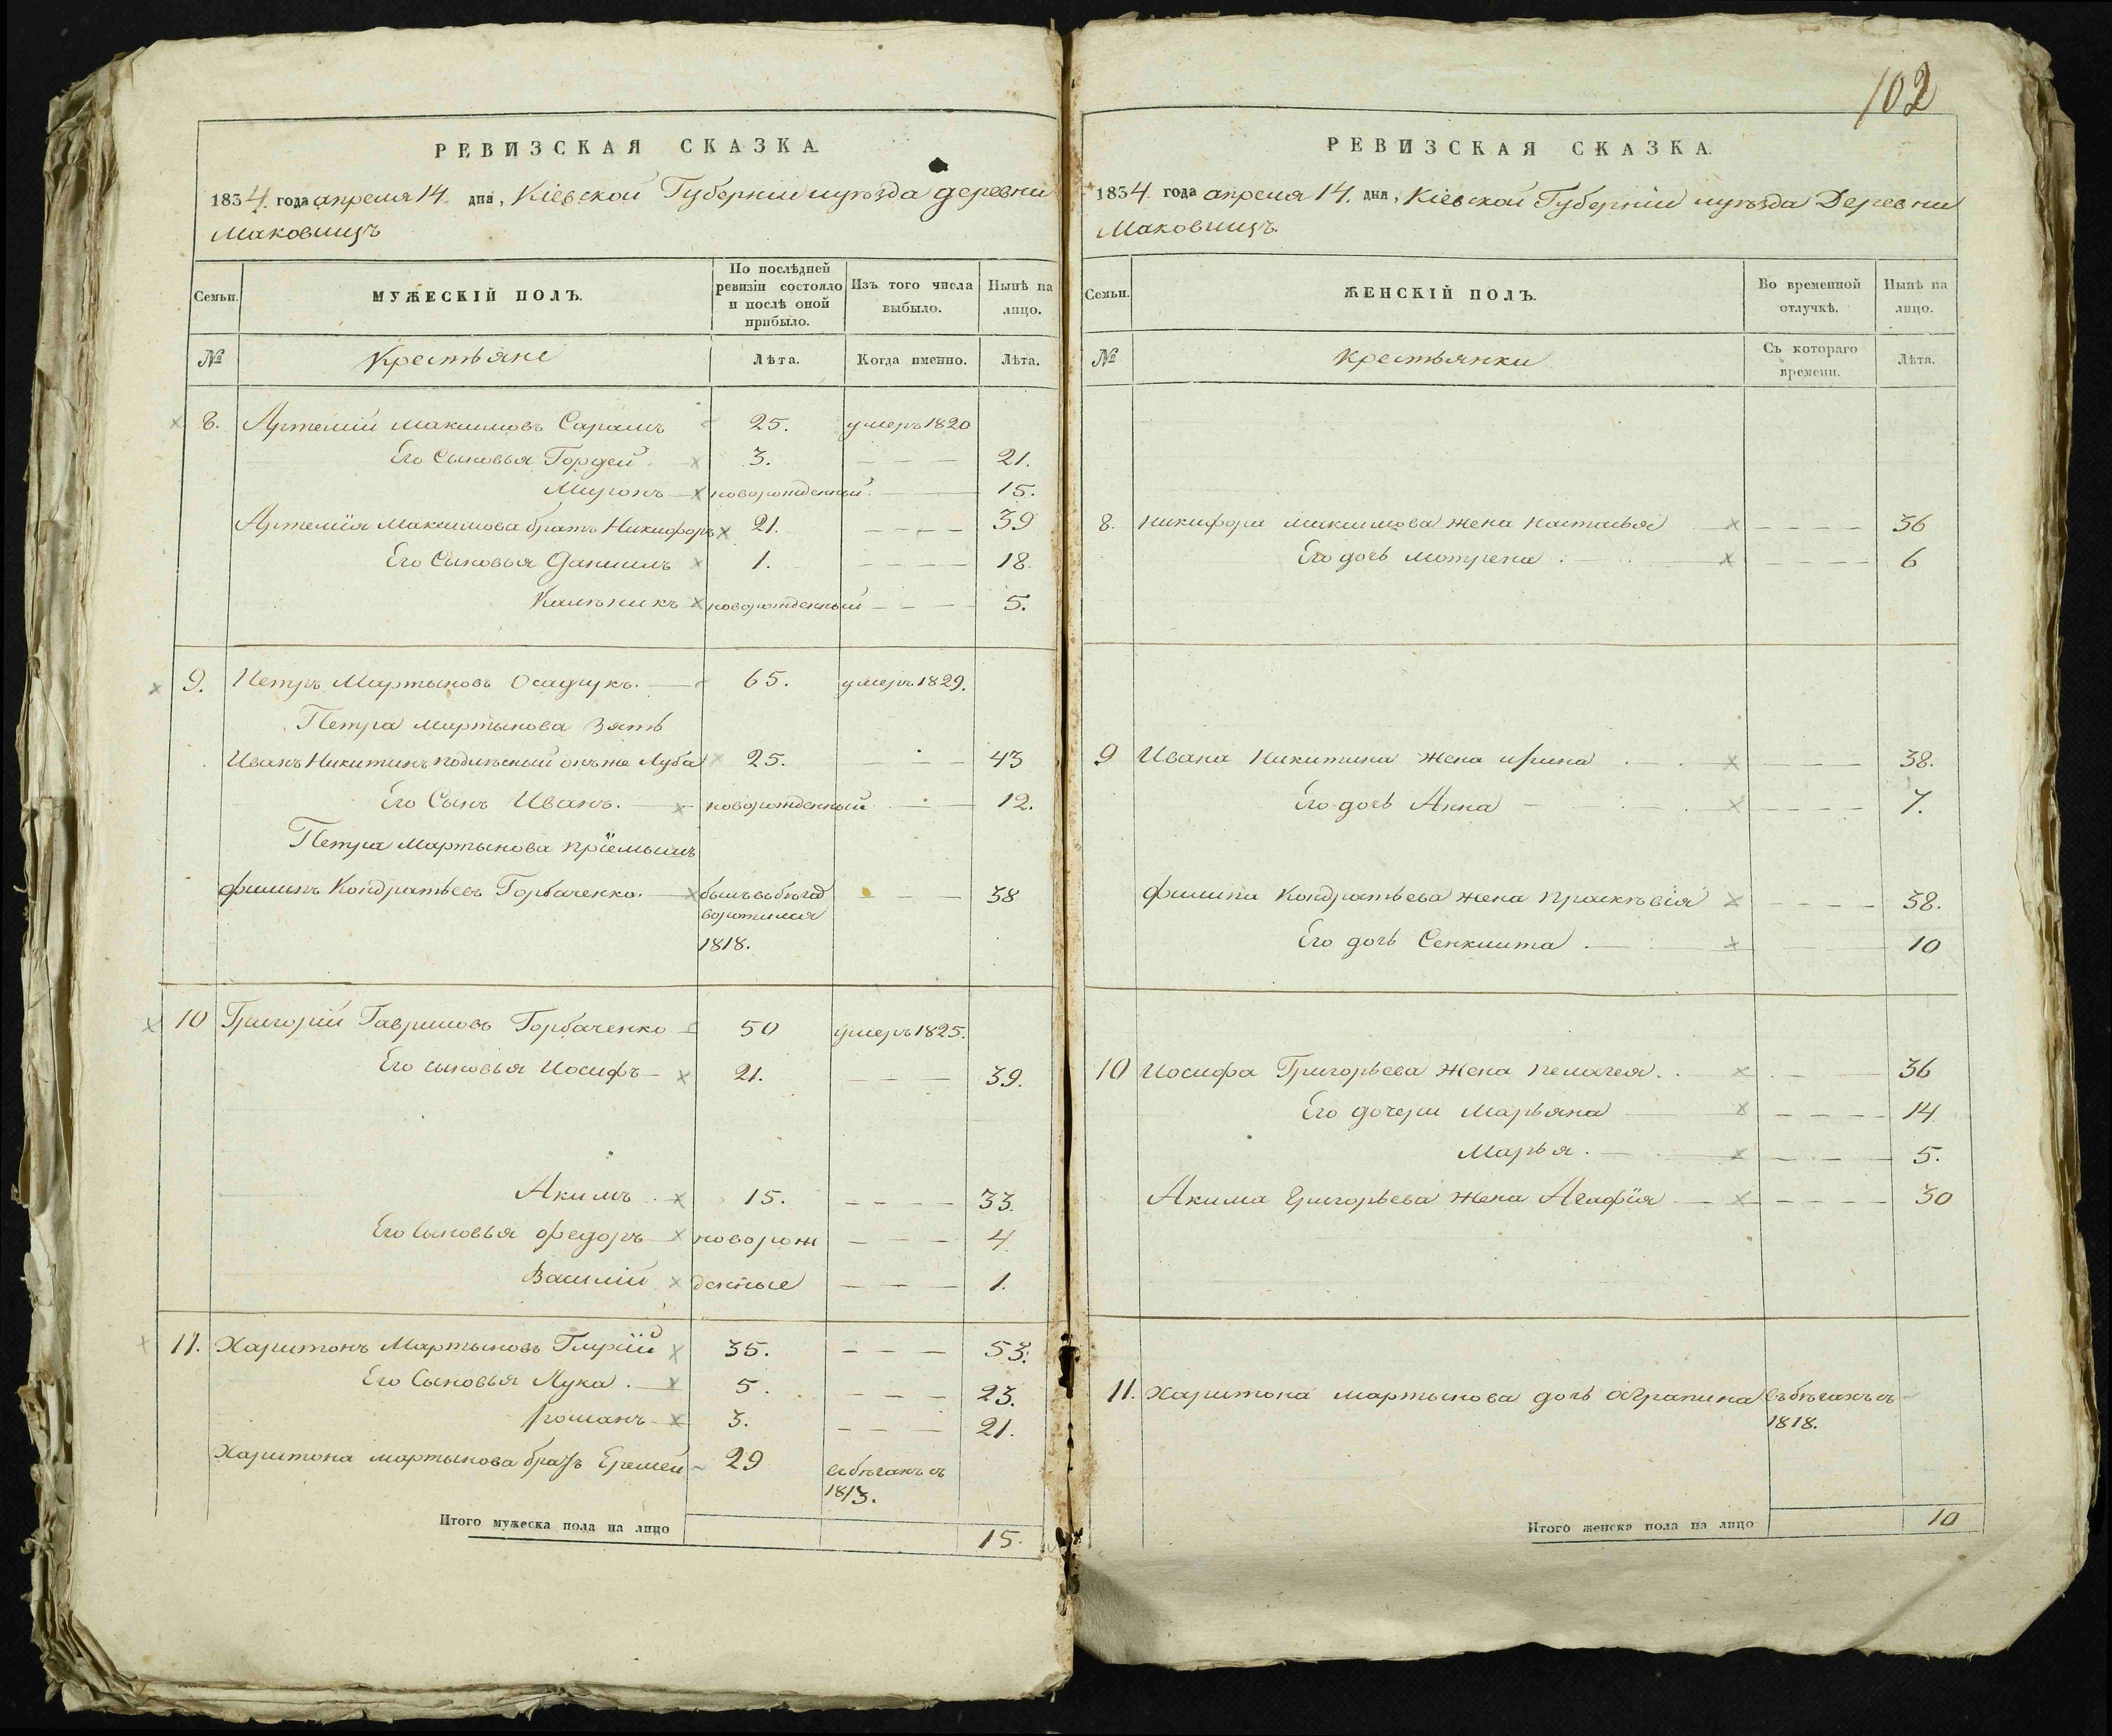 РЕВИЗСКАЯ СКАЗКА.
1834 года апреля 14 дня, Кіевской Губерніи и уѣзда деревни
Маковищъ
Семьи.
МУЖЕСКІЙ ПОЛЪ.
По послѣдней ревизіи состояло и послѣ оной прибыло.
Изъ того числа выбыло.
Нынѣ на лицо.
№
Крестьяне
Лѣта.
Когда именно.
Лѣта.
8. Артемій Максимовъ 25. умеръ 1820
Его Сыновья Гордей 3. — — — 21.
Миронъ новорожденный — — 15.
Артемія Максимова братъ Никифоръ 21. — — — 39
Его Сыновья Даниилъ 1. — — — 18.
Калѣникъ новорожденный — — — 5.
9. Петръ Мартыновъ Осадчукъ. 65. умеръ 1829.
Петра Мартынова Зять
Иванъ Никитинъ подлѣсный онъ же Луба 25. — — — 43
Его Сынъ Иванъ. новорожденный — — 12.
Петра Мартынова пріёмышъ
Филипъ Кондратьевъ Горбаченко. былъ въ бѣгах — — — 38
воротился
1818.
10 Григорій Гавриловъ Горбаченко 50 умеръ 1825.
Его сыновья Іосифъ 21. — — — 39.
Акимъ 15. — — — 33.
Его Сыновья Федоръ новорож — — — 4.
Василій денные — — — 1.
11. Харитонъ Мартыновъ 35. — — — 53.
Его Сыновья Лука. 5. — — — 23.
Романъ 3. — — — 21.
Харитона мартынова братъ Еремей 29 въ бѣгахъ съ
1813.
Итого мужеска пола на лицо 15.
102
РЕВИЗСКАЯ СКАЗКА.
1834 года апреля 14. дня, Кіевской Губерніи и уѣзда Деревни
Маковищъ.
Семьи.
ЖЕНСКІЙ ПОЛЪ.
Во временной отлучкѣ.
Нынѣ на лицо.
№
Крестьянки
Съ котораго времени.
Лѣта.
8. Никифора максимова жена настасья — — — — 36
Его дочь мотрена — — — — 6
9 Ивана Никитина жена ирина — — — 38.
Его дочь Анна — — — — 7.
Филипа Кондратьева жена Прасковія — — — — 38.
Его дочь 10
10 Іосифа Григорьева жена пелагея. — — 36
Его дочери Марьяна — — — — 14.
Марья. — — — 5.
Акима Григорьева жена Агафія — — — — 30
11. Харитона мартынова дочь Аграпина въ бѣгахъ съ
1818.
Итого женска пола на лицо 10